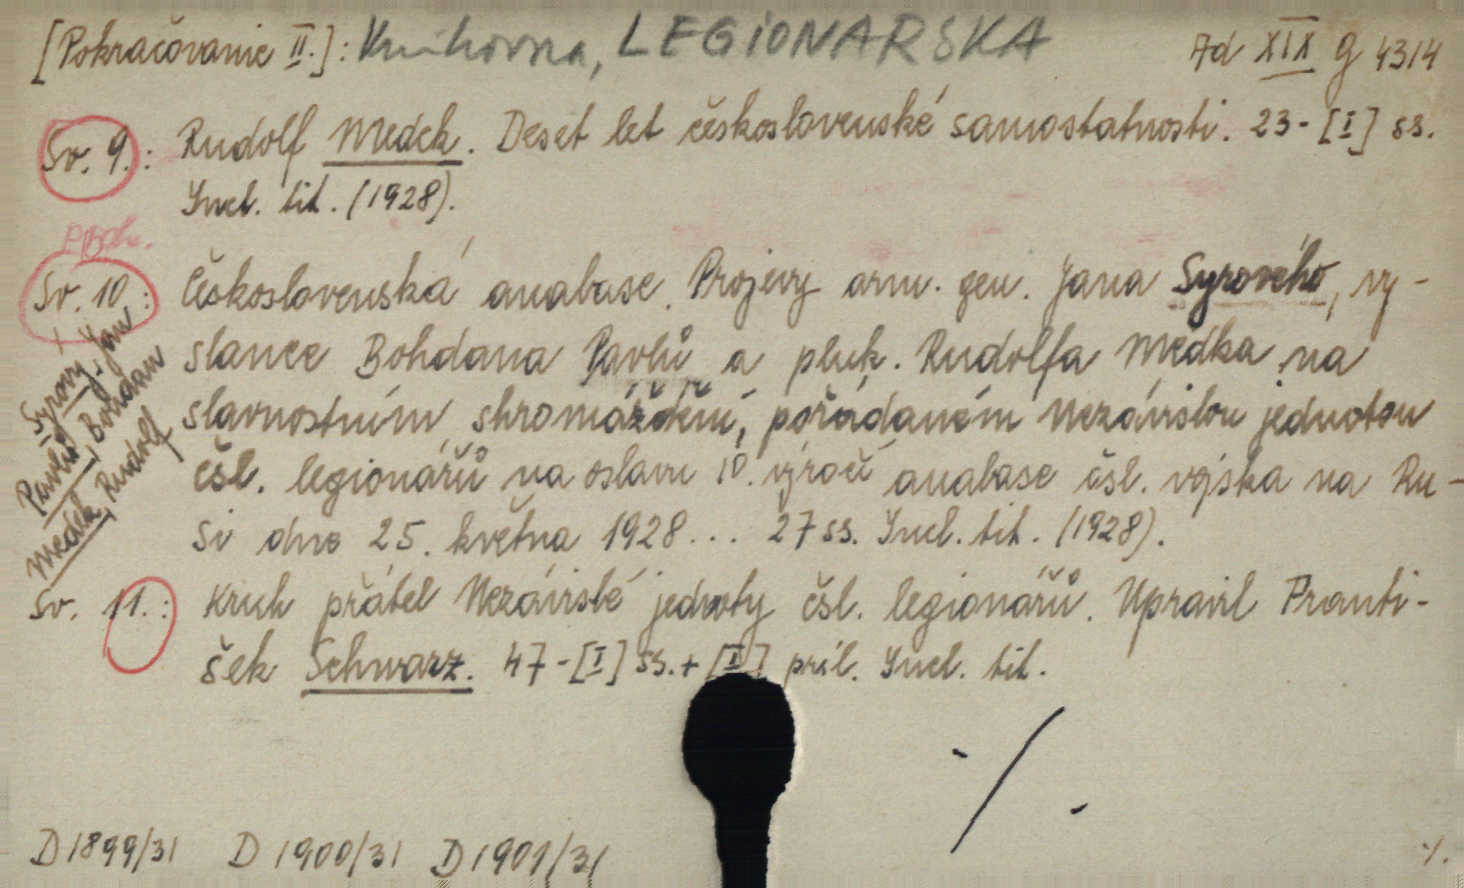 [Pokračovanie II.]: Knihovna, LEGIONÁRSKA Ad XIX G 4314
Sv. 9.: Rudolf Medek. Deset let československé samostatnosti. 23-[I] ss.
Incl. tit. (1928).
Sv. 10.: Československá anabase. Projevy arm. gen. Jana Syrového, vy-
slance Bohdana Pavlů a pluk. Rudolfa Medka na
slavnostním shromáždění, pořádaném Nezávislou jednotou
čsl. legionářů na oslavu 10. výročí anabase čsl. vojska na Ru-
si dne 25. května 1928... 27 ss. Incl. tit. (1928).
Syrový, Jan
Pavlů, Bohdan
Medek, Rudolf
Sv. 11.: Kruh přátel Nezávislé jednoty čsl. legionářů. Upravil Franti-
šek Schwarz. 47-[I] ss.+[I] príl. Incl. tit.
./.
D 1899/31 D 1900/31 D 1901/31 ./.